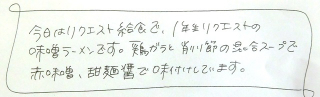 今日はリクエスト給食で、1年生リクエストの
味噌ラーメンです。鶏ガラと削り節の混合スープで
赤味噌、甜麺醤で味付けしています。